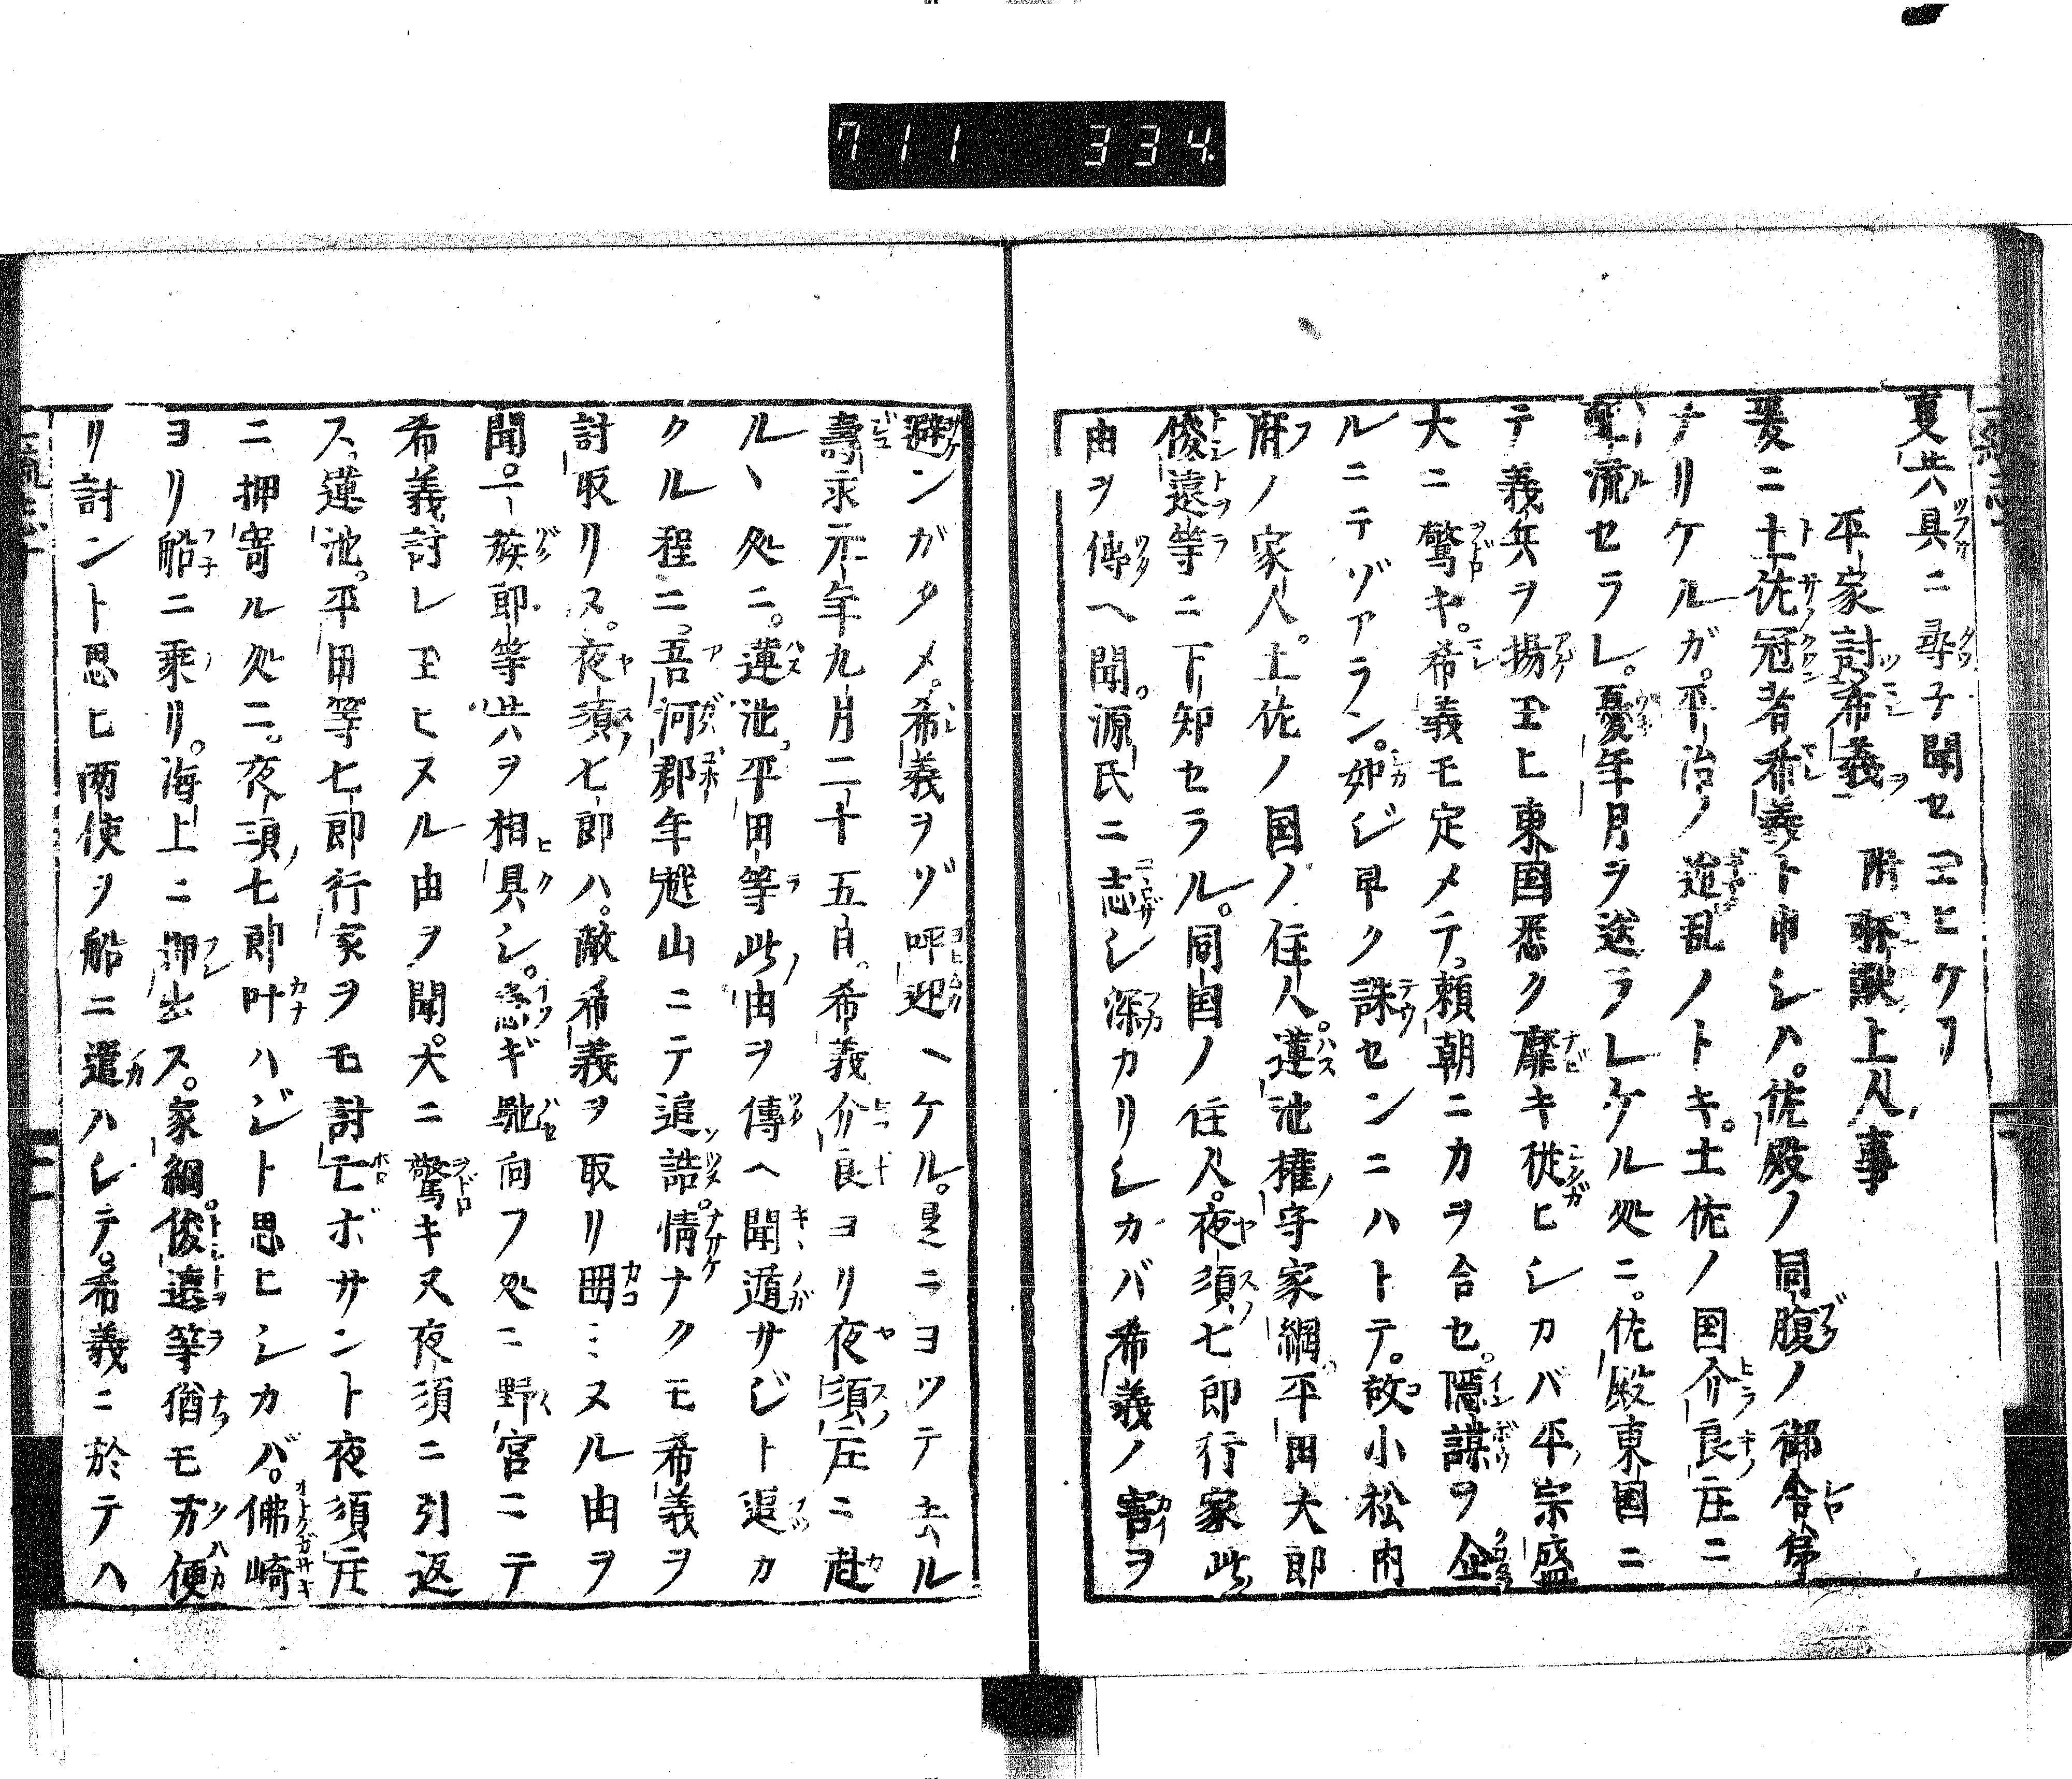 711 334
夏共具ニ尋子聞セ玉ヒケリ
平家討希義ヲ 附琳猷上人ノ事
爰ニ土佐冠者希義ト申シハ。佐殿ノ同腹ノ御舎弟
ナリケルガ。平治ノ逆乱ノトキ。土佐ノ国介良庄ニ
配流セラレ。憂年月ヲ送ラレケル処ニ。佐殿東国ニ
テ義兵ヲ揚玉ヒ東国悉ク靡キ従ヒシカバ平宗盛
大ニ驚キ。希義モ定メテ。頼朝ニカヲ合セ。隠謀ヲ企
ルニテゾアラン。如ジ早ク誅センニハトテ。故小松内
府ノ家人。土佐ノ国ノ住人。蓮池権ノ守家綱。平田太郎
俊遠等ニ下知セラル。同国ノ住人。夜須七郎行家此
由ヲ傳ヘ聞。源氏ニ志シ深カリシカバ希義ノ害ヲ
避ンガタメ。希義ヲゾ呼迎ヘケル。是ニヨツテ去ル
壽永元年九月二十五日。希義介良ヨリ夜須庄ニ赴
ルヽ処ニ。蓮池。平田等此由ヲ傳ヘ聞遁サジト追カ
クル程ニ。吾河郡年越山ニテ追詰。情ナクモ希義ヲ
討取リヌ。夜須七郎ハ。敵希義ヲ取リ囲ミヌル由ヲ
聞。一族郎等共ヲ相具シ。急ギ馳向フ処ニ野宮ニテ
希義討レ玉ヒヌル由ヲ聞。大ニ驚キ又夜須ニ引返
ス。蓮池。平田等七郎行家ヲモ討亡ボサント夜須庄
ニ押寄ル処ニ。夜須ノ七郎叶ハジト思ヒシカバ。佛崎
ヨリ船ニ乗リ。海上ニ押出ス。家綱。俊遠等猶モ方便
リ討ント思ヒ両使ヲ船ニ遣ハシテ。希義ニ於テハ